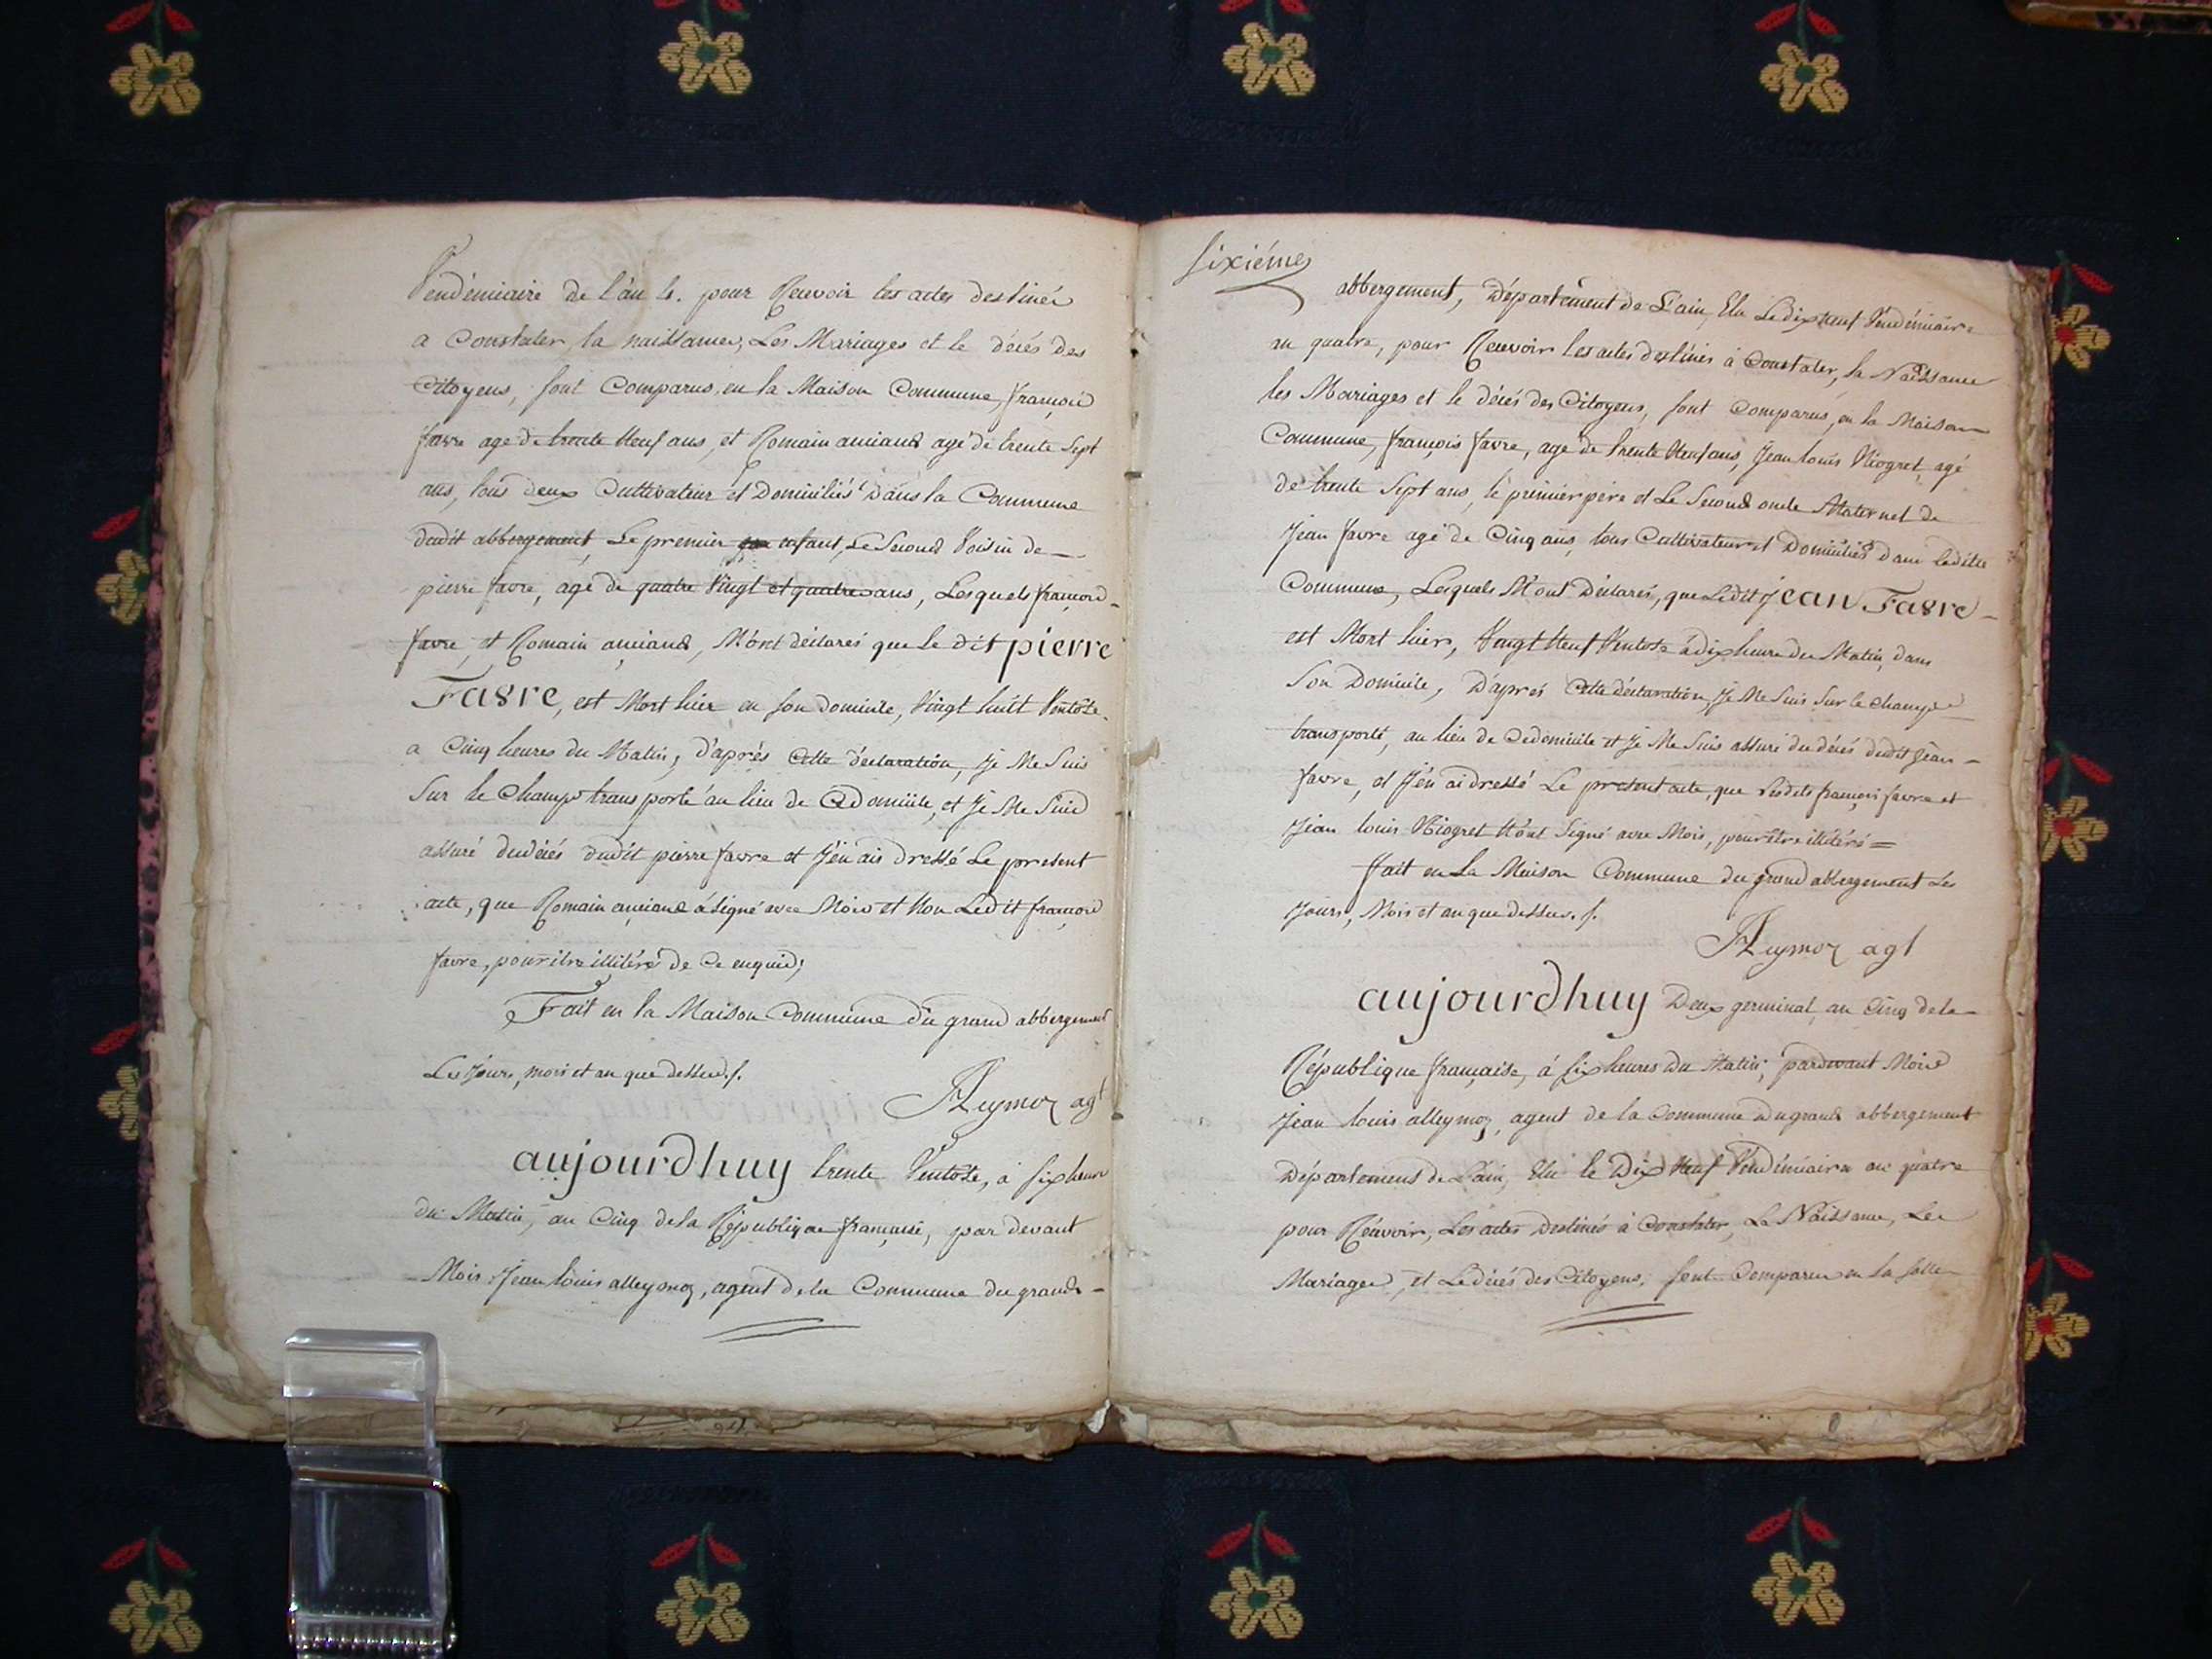 Vendémiaire de l'an 4. pour Recevoir les actes destinés
a Constater, la naissance, Les Mariages et le décés des
Citoyens, sont Comparus, en la Maison Commune, françois
favre agé de trente Neuf ans, et Romain amiand agé de trente Sept
ans, tous deux Cultivateur et Domiciliés Dans la Commune
dudit abbergement, Le premier enfant, Le Second Voisin de
pierre favre, agé de quatre Vingt et quatre ans, Lesquels françois
favre, et Romain amiand, M'ont déclarés que le dit pierre
Favre, est Mort hier en son domicile, Vingt huit Ventose
a Cinq heures du Matin, d'aprés Cette déclaration, Je Me Suis
Sur le Champ transporté au lieu de Ce domicile, et Je Me Suis
assuré du décés dudit pierre favre et J'en ais dressé Le présent
acte, que Romain amiand a Signé avec Mois et Non Ledit françois
favre, pour être illitéré de Ce enquis;
Fait en la Maison Commune du grand abbergement
Les Jours, mois et an que dessus./.
JLeymoz agt
aujourdhuy trente Ventose, à six heure
du Matin, an Cinq de la République française, par devant
Mois Jean louis alleymoz, agent de la Commune du grand
Sixiéme
abbergement, Département de L'ain, Elu Le dix neuf Vendémiaire
an quatre, pour Recevoir les actes destinés à Constater, la Naissance
les Mariages et le décés des Citoyens, sont Comparus, en la Maison
Commune, françois favre, agé de trente Neuf ans, Jean louis Niogret, agé
de trente Sept ans, le premier pére et Le Second oncle Maternel de
Jean favre agé de Cinq ans, tous Cultivateur et Domiciliés dans ladite
Commune, Lesquels M'ont Déclarés, que Ledit Jean Favre
est Mort hier, Vingt Neuf Ventose à dix heure du Matin, dans
Son Domicile, D'aprés Cette déclaration, Je Me Suis Sur le Champ
transporté, au lieu de Ce domicile et Je Me Suis assuré du décés dudit Jean
favre, et J'en ai dressé Le présent acte, que Lesdits françois favre et
Jean louis Niogret N'ont Signé avec Mois, pour être illitéré =
Fait en La Maison Commune du grand abbergement Les
Jours, Mois et an que dessus./.
JLeymoz agt
aujourdhuy Deux germinal, an Cinq de la
République française, à six heures du Matin, pardevant Mois
Jean louis alleymoz, agent de la Commune du grand abbergement
Département de L'ain, Elu le Dix Neuf Vendémiaire an quatre
pour Recevoir, Les actes Destinés à Constater, La Naissance, Les
Mariages, et Le décés des Citoyens, sont Comparus en la salle